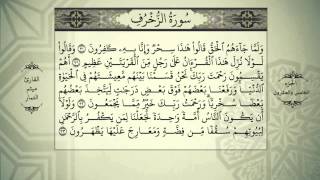 سُورَةُ الزُّخْرُفِ
وَلَمَّا جَاءَهُمُ الْحَقُّ قَالُوا هَٰذَا سِحْرٌ وَإِنَّا بِهِ كَافِرُونَ ٣٠ وَقَالُوا
لَوْلَا نُزِّلَ هَٰذَا الْقُرْءَانُ عَلَىٰ رَجُلٍ مِنَ الْقَرْيَتَيْنِ عَظِيمٍ ٣١ أَهُمْ
يَقْسِمُونَ رَحْمَتَ رَبِّكَ نَحْنُ قَسَمْنَا بَيْنَهُمْ مَعِيشَتَهُمْ فِي الْحَيَوٰةِ
الدُّنْيَا وَرَفَعْنَا بَعْضَهُمْ فَوْقَ بَعْضٍ دَرَجَٰتٍ لِيَتَّخِذَ بَعْضُهُمْ
بَعْضًا سُخْرِيًّا وَرَحْمَتُ رَبِّكَ خَيْرٌ مِمَّا يَجْمَعُونَ ٣٢ وَلَوْلَا
أَنْ يَكُونَ النَّاسُ أُمَّةً وَٰحِدَةً لَجَعَلْنَا لِمَنْ يَكْفُرُ بِالرَّحْمَٰنِ
لِبُيُوتِهِمْ سُقُفًا مِنْ فِضَّةٍ وَمَعَارِجَ عَلَيْهَا يَظْهَرُونَ ٣٣
القارئ
ميثم
التمار
الجزء
الخامس والعشرون